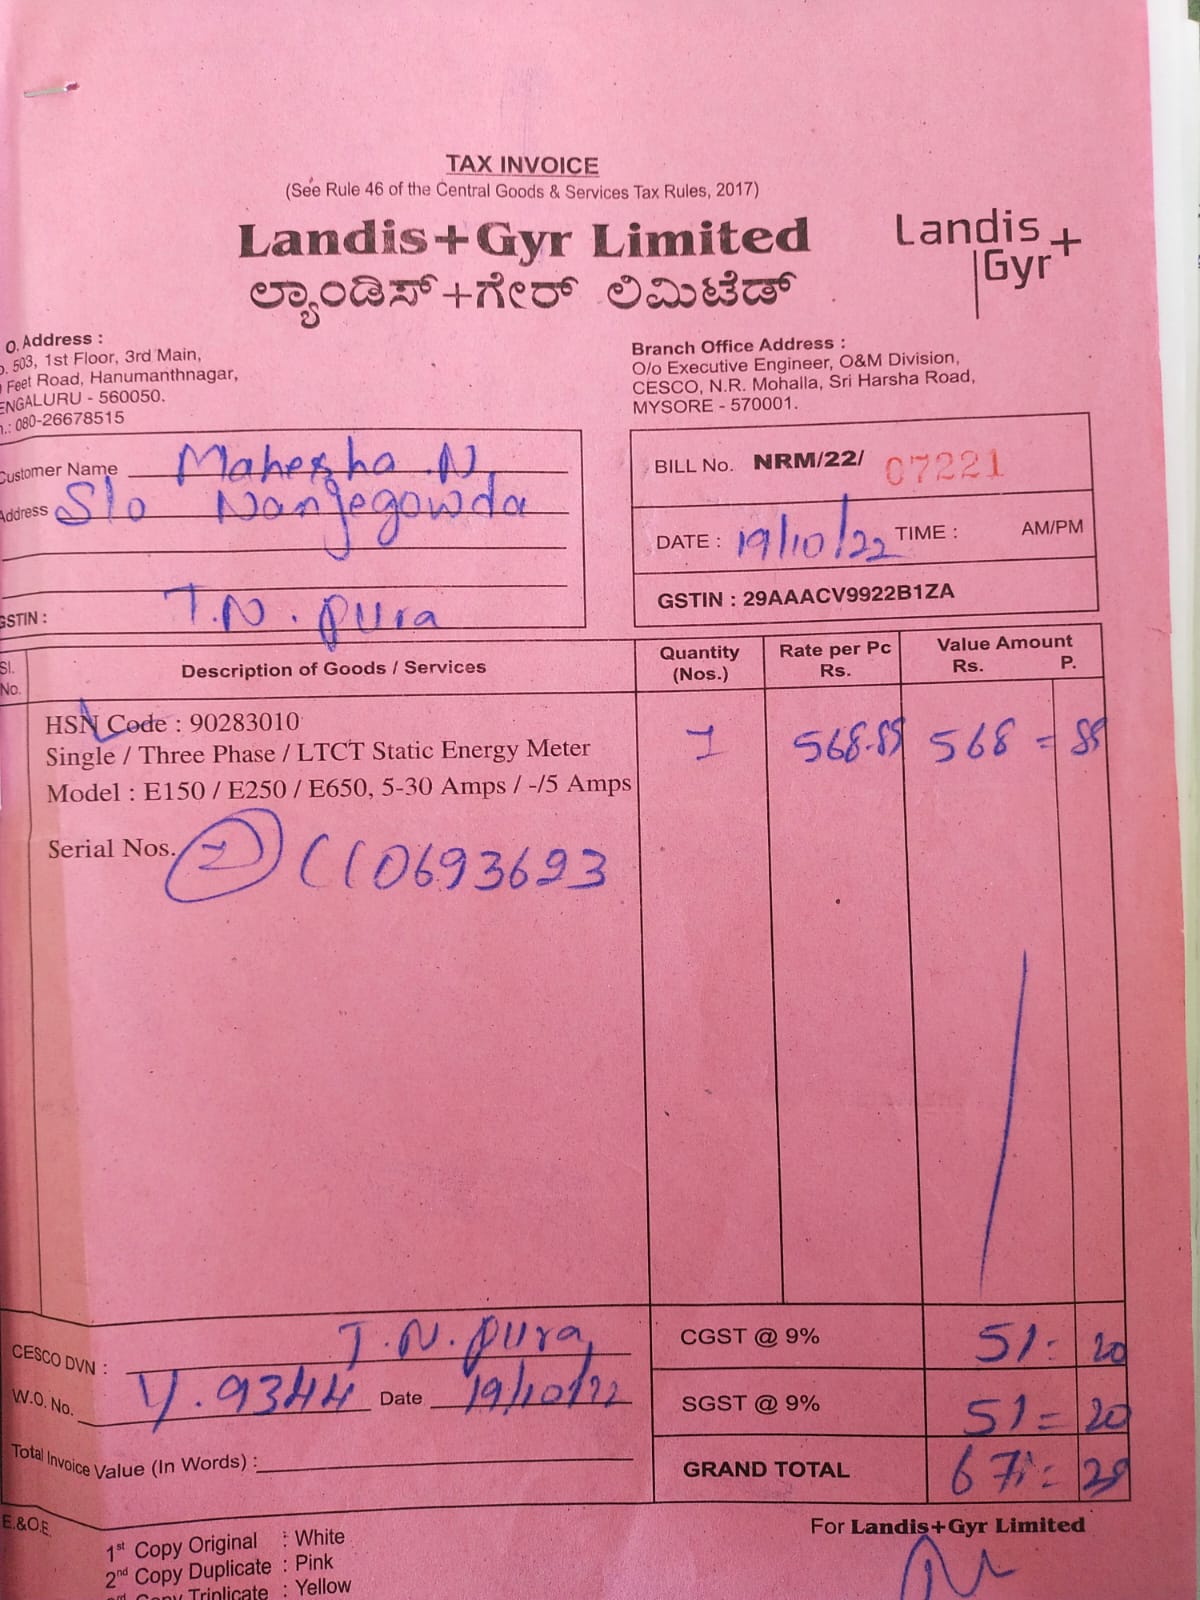 TAX INVOICE
(See Rule 46 of the Central Goods & Services Tax Rules, 2017)
Landis+Gyr Limited
ಲ್ಯಾಂಡಿಸ್+ಗೇರ್ ಲಿಮಿಟೆಡ್
Landis
Gyr+
O. Address :
. 503, 1st Floor, 3rd Main,
Feet Road, Hanumanthnagar,
ENGALURU - 560050.
.: 080-26678515
Branch Office Address :
O/o Executive Engineer, O&M Division,
CESCO, N.R. Mohalla, Sri Harsha Road,
MYSORE - 570001.
Customer Name Mahesha .N
Address S/o Nanjegowda
GSTIN : T.N. pura
BILL No. NRM/22/ 07221
DATE : 19/10/22 TIME : AM/PM
GSTIN : 29AAACV9922B1ZA
Sl. No. Description of Goods / Services Quantity (Nos.) Rate per Pc Rs. Value Amount Rs. P.
HSN Code : 90283010
Single / Three Phase / LTCT Static Energy Meter 1 568.85 568 =
Model : E150 / E250 / E650, 5-30 Amps / -/5 Amps
Serial Nos. 10693693
CESCO DVN : T.N. pura
CGST @ 9% 51 = 20
W.O. No. 9344 Date 19/10/22
SGST @ 9% 51 = 20
Total Invoice Value (In Words) :
GRAND TOTAL 671 =
E.&O.E.
For Landis+Gyr Limited
1st Copy Original : White
2nd Copy Duplicate : Pink
Copy Triplicate : Yellow